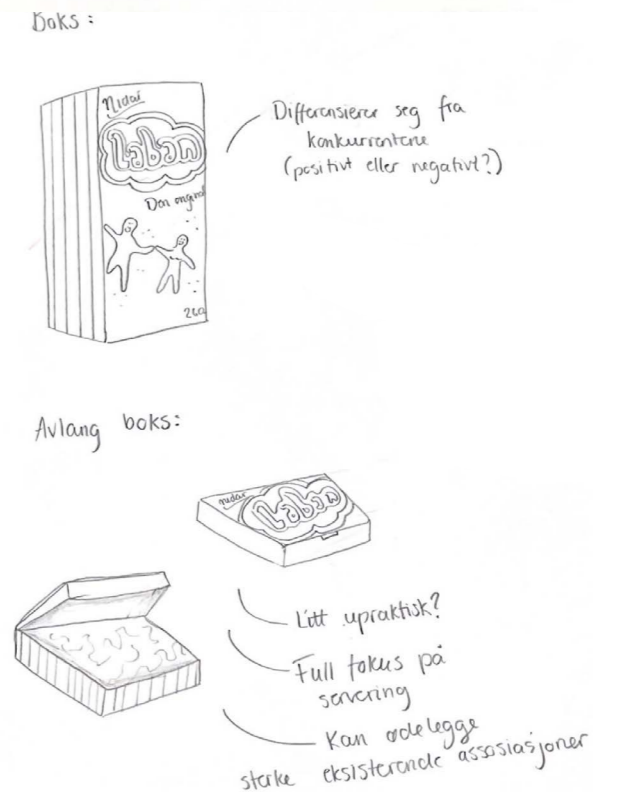 Boks:
Nidar
Laban
Den original
Differensierer seg fra
konkurrentene
(positivt eller negativt?)
260
Avlang boks:
nidar
Laban
Litt upraktisk?
Full fokus på
servering
Kan ødelegge
sterke eksisterende assosiasjoner